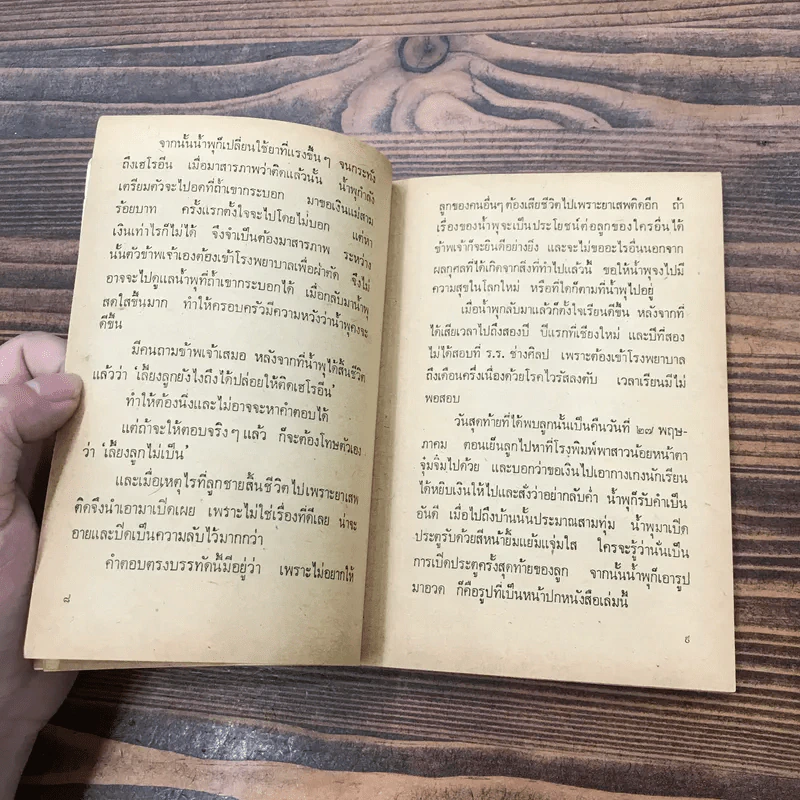 จากนั้นน้ำพุก็เปลี่ยนใช้ยาที่แรงขึ้นๆ จนกระทั่ง
ถึงเฮโรอีน เมื่อมาสารภาพว่าติดแล้วนั้น น้ำพุกำลัง
เตรียมตัวจะไปอดที่ถ้ำเขากระบอก มาขอเงินแม่สาม
ร้อยบาท ครั้งแรกตั้งใจจะไปโดยไม่บอก แต่หา
เงินเท่าไรก็ไม่ได้ จึงจำเป็นต้องมาสารภาพ ระหว่าง
นั้นตัวข้าพเจ้าเองต้องเข้าโรงพยาบาลเพื่อผ่าตัด จึงไม่
อาจจะไปดูแลน้ำพุที่ถ้ำเขากระบอกได้ เมื่อกลับมาน้ำพุ
สดใสขึ้นมาก ทำให้ครอบครัวมีความหวังว่าน้ำพุคงจะ
ดีขึ้น
มีคนถามข้าพเจ้าเสมอ หลังจากที่น้ำพุได้สิ้นชีวิต
แล้วว่า 'เลี้ยงลูกยังไงถึงได้ปล่อยให้ติดเฮโรอีน'
ทำให้ต้องนิ่งและไม่อาจจะหาคำตอบได้
แต่ถ้าจะให้ตอบจริงๆ แล้ว ก็จะต้องโทษตัวเอง
ว่า 'เลี้ยงลูกไม่เป็น'
และเมื่อเหตุไรที่ลูกชายสิ้นชีวิตไปเพราะยาเสพ
ติดจึงนำเอามาเปิดเผย เพราะไม่ใช่เรื่องที่ดีเลย น่าจะ
อายและปิดเป็นความลับไว้มากกว่า
คำตอบตรงบรรทัดนี้มีอยู่ว่า เพราะไม่อยากให้
๘
ลูกของคนอื่นๆ ต้องเสียชีวิตไปเพราะยาเสพติดอีก ถ้า
เรื่องของน้ำพุจะเป็นประโยชน์ต่อลูกของใครอื่นได้
ข้าพเจ้าก็จะยินดีอย่างยิ่ง และจะไม่ขออะไรอื่นนอกจาก
ผลกุศลที่ได้เกิดจากสิ่งที่ทำไปแล้วนี้ ขอให้น้ำพุจงไปมี
ความสุขในโลกใหม่ หรือที่ใดก็ตามที่น้ำพุไปอยู่
เมื่อน้ำพุกลับมาแล้วก็ตั้งใจเรียนดีขึ้น หลังจากที่
ได้เสียเวลาไปถึงสองปี ปีแรกที่เชียงใหม่ และปีที่สอง
ไม่ได้สอบที่ ร.ร. ช่างศิลป เพราะต้องเข้าโรงพยาบาล
ถึงเดือนครึ่งเนื่องด้วยโรคไวรัสลงตับ เวลาเรียนมีไม่
พอสอบ
วันสุดท้ายที่ได้พบลูกนั้นเป็นคืนวันที่ ๒๗ พฤษ-
ภาคม ตอนเย็นลูกไปหาที่โรงพิมพ์พาสาวน้อยหน้าตา
จุ๋มจิ๋มไปด้วย และบอกว่าขอเงินไปเอากางเกงนักเรียน
ได้หยิบเงินให้ไปและสั่งว่าอย่ากลับค่ำ น้ำพุก็รับคำเป็น
อันดี เมื่อไปถึงบ้านนั้นประมาณสามทุ่ม น้ำพุมาเปิด
ประตูรับด้วยสีหน้ายิ้มแย้มแจ่มใส ใครจะรู้ว่านั่นเป็น
การเปิดประตูครั้งสุดท้ายของลูก จากนั้นน้ำพุก็เอารูป
มาอวด ก็คือรูปที่เป็นหน้าปกหนังสือเล่มนี้
๙